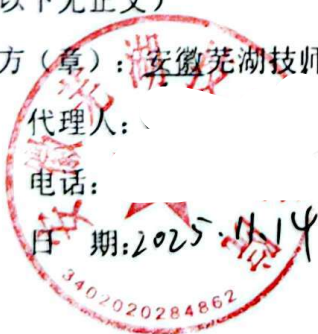 以下无正文）
方（章）：安徽芜湖技师
代理人：
电话：
日 期：2025.11.14
安徽芜湖技
3402020284862